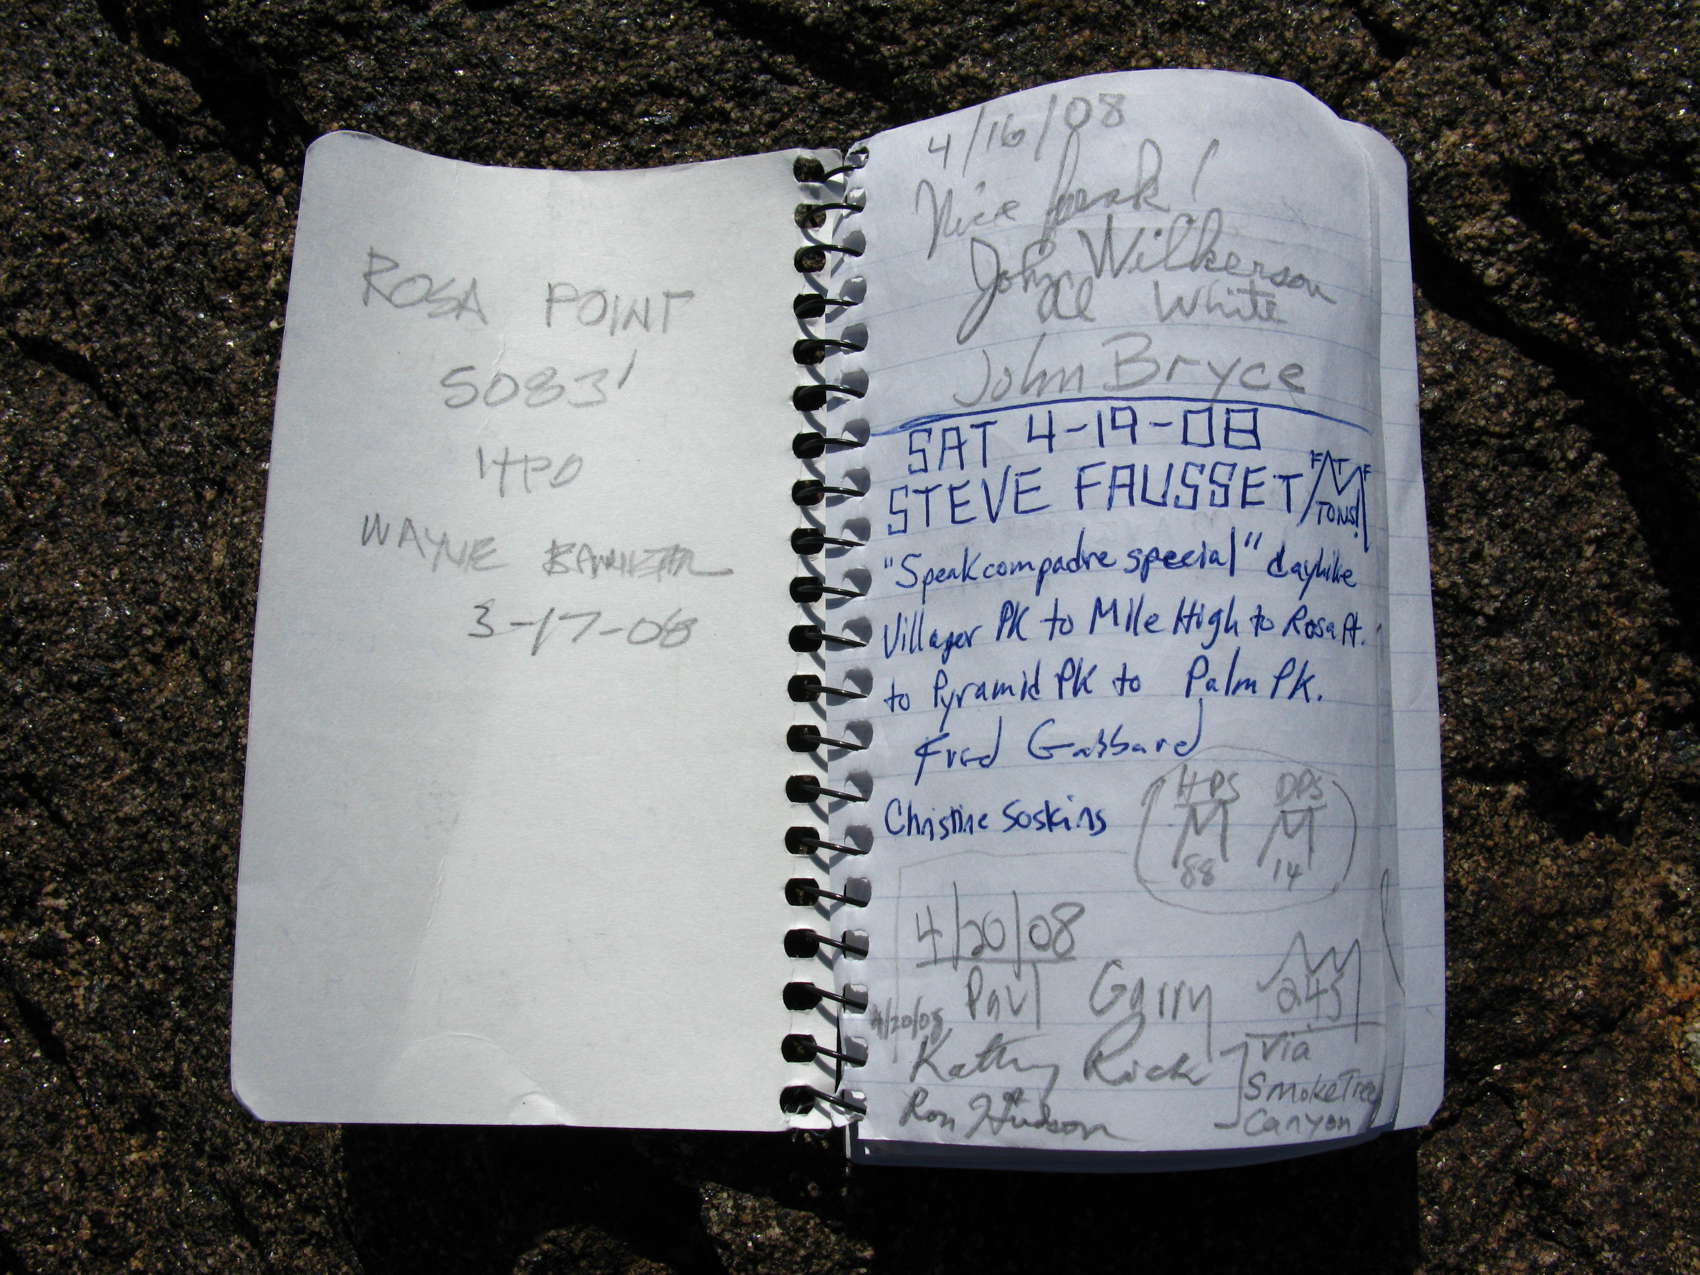 ROSA POINT
5083'
WAYNE
3-17-08
4/16/08
Nice peak!
John Wilkerson
Al White
John Bryce
SAT 4-19-08
STEVE FAUSSET
F T F
TONS!
"Speakcompadre special" dayhike
Villager PK to Mile High to Rosa Pt.
to Pyramid PK to Palm PK.
Fred Gabbard
Christine Soskins
HPS DPS
88 14
4/20/08
Paul Garry 243
4/20/08
Kathy Rich via
Ron Hudson SmokeTree
Canyon